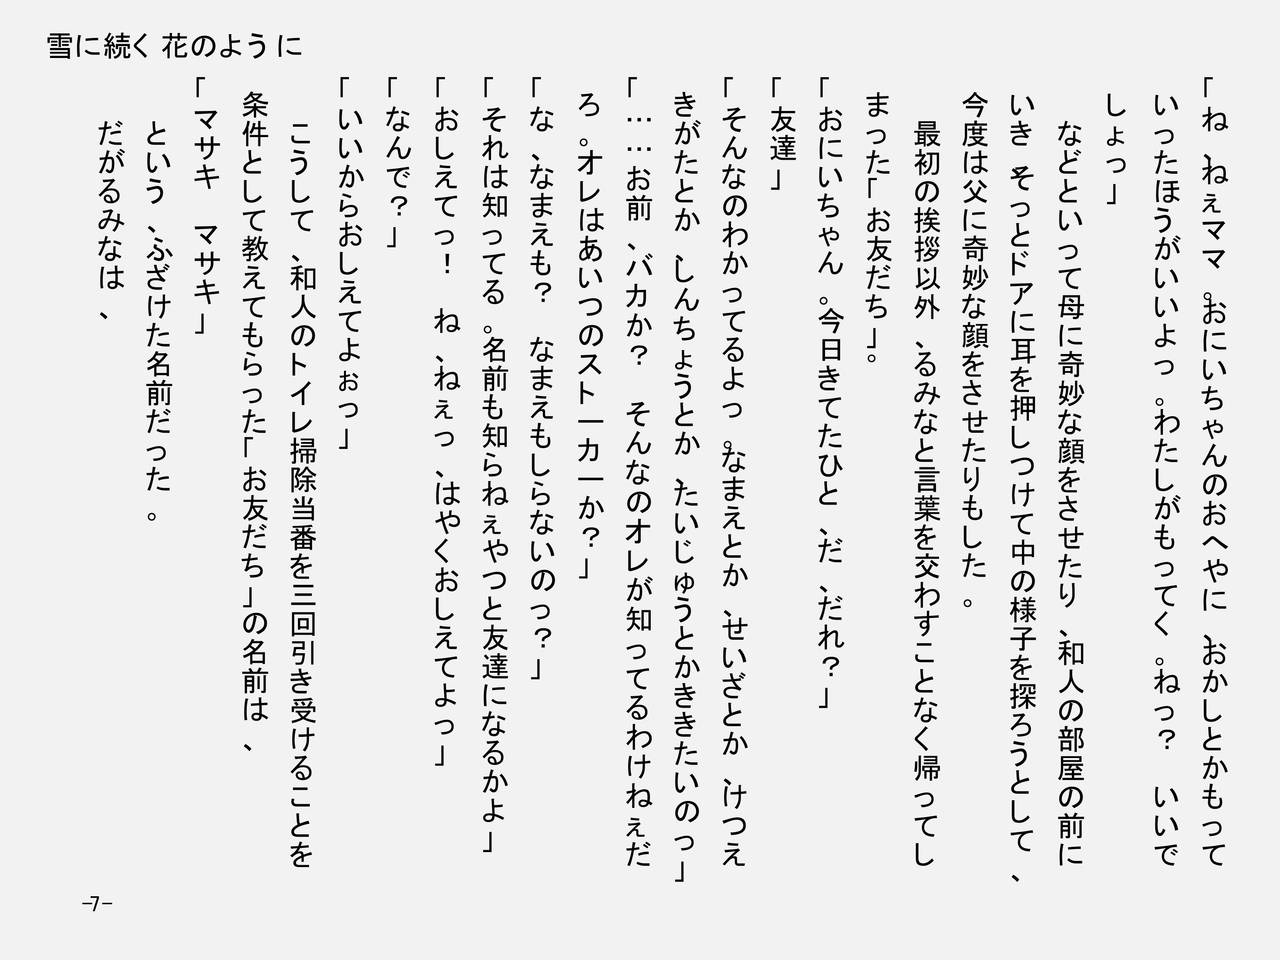 雪に続く花のように
「ね、ねぇママ。おにいちゃんのおへやに、おかしとかもって
いったほうがいいよっ。わたしがもってく。ねっ？　いいで
しょっ」
などといって母に奇妙な顔をさせたり、和人の部屋の前に
いき、そっとドアに耳を押しつけて中の様子を探ろうとして、
今度は父に奇妙な顔をさせたりもした。
最初の挨拶以外、るみなと言葉を交わすことなく帰ってし
まった「お友だち」。
「おにいちゃん。今日きてたひと、だ、だれ？」
「友達」
「そんなのわかってるよっ。なまえとか、せいざとか、けつえ
きがたとか、しんちょうとか、たいじゅうとかききたいのっ」
「……お前、バカか？　そんなのオレが知ってるわけねぇだ
ろ。オレはあいつのストーカーか？」
「な、なまえも？　なまえもしらないのっ？」
「それは知ってる。名前も知らねぇやつと友達になるかよ」
「おしえてっ！　ね、ねぇっ、はやくおしえてよっ」
「なんで？」
「いいからおしえてよぉっ」
こうして、和人のトイレ掃除当番を三回引き受けることを
条件として教えてもらった「お友だち」の名前は、
「マサキ　マサキ」
という、ふざけた名前だった。
だがるみなは、
-7-